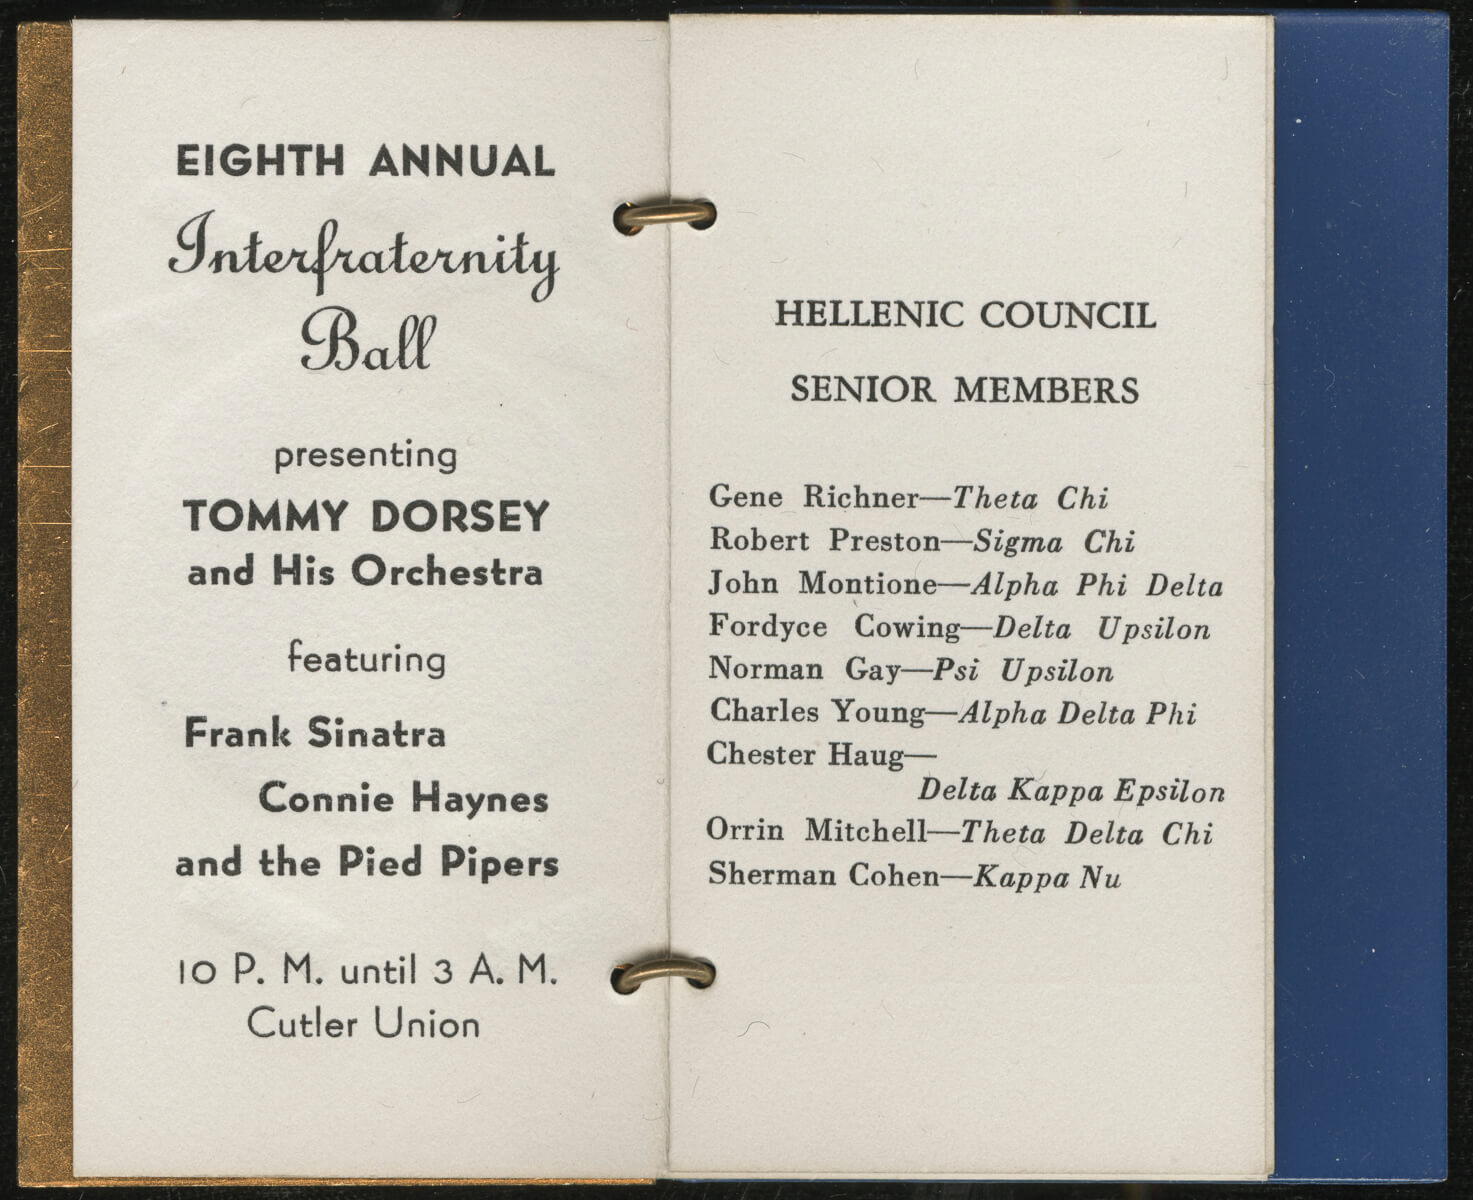 EIGHTH ANNUAL
Interfraternity
Ball
presenting
TOMMY DORSEY
and His Orchestra
featuring
Frank Sinatra
Connie Haynes
and the Pied Pipers
10 P. M. until 3 A. M.
Cutler Union
HELLENIC COUNCIL
SENIOR MEMBERS
Gene Richner—Theta Chi
Robert Preston—Sigma Chi
John Montione—Alpha Phi Delta
Fordyce Cowing—Delta Upsilon
Norman Gay—Psi Upsilon
Charles Young—Alpha Delta Phi
Chester Haug—
Delta Kappa Epsilon
Orrin Mitchell—Theta Delta Chi
Sherman Cohen—Kappa Nu